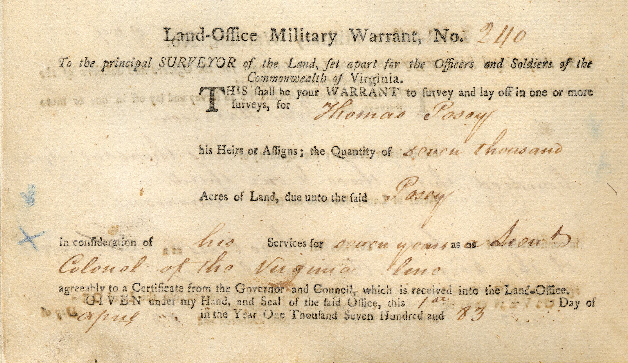 Land-Office Military Warrant, No. 240
To the principal SURVEYOR of the Land, set apart for the Officers and Soldiers of the
Commonwealth of Virginia.
THIS shall be your WARRANT to survey and lay off in one or more
surveys, for Thomas Posey
his Heirs or Assigns; the Quantity of seven thousand
Acres of Land, due unto the said Posey
in consideration of his Services for seven years as a Lieut
Colonel of the Virginia line
agreeably to a Certificate from the Governor and Council, which is received into the Land-Office.
GIVEN under my Hand, and Seal of the said Office, this 1st Day of
april in the Year One Thousand Seven Hundred and 83